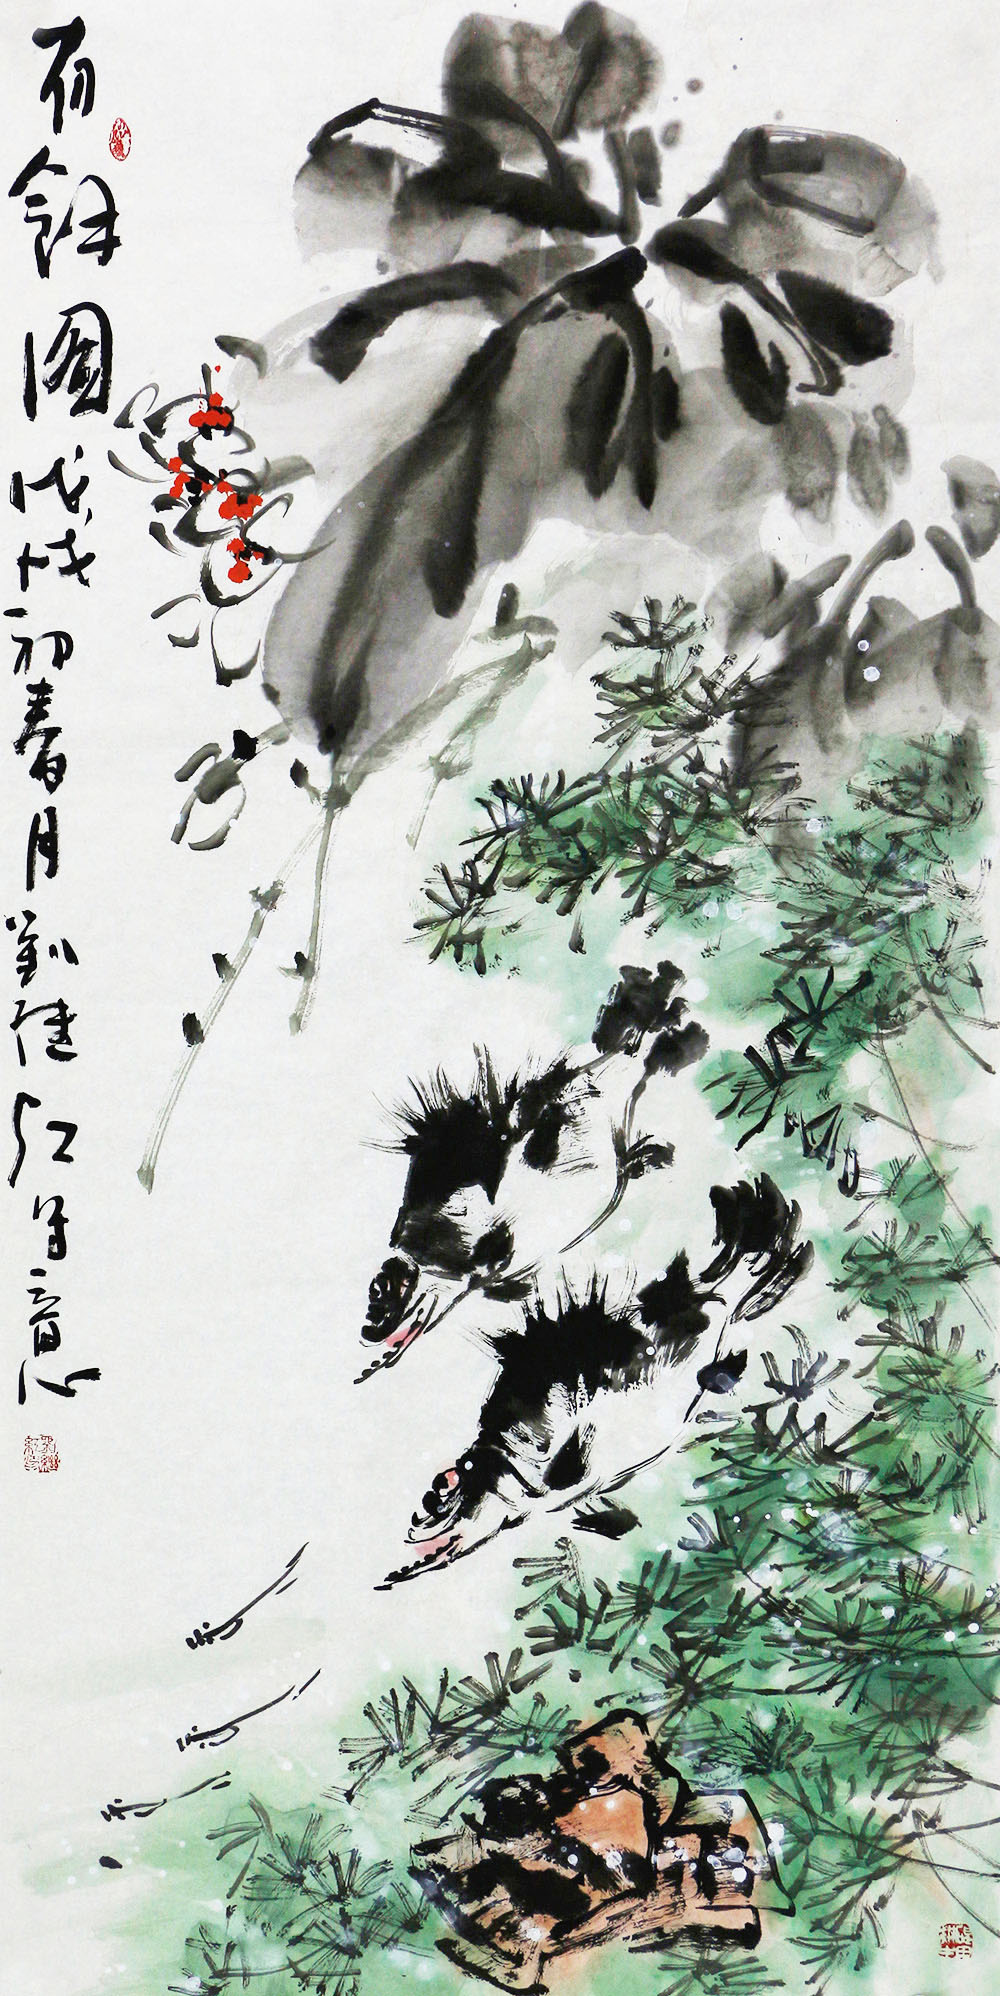 有餘图戊戌初春月劉继红写意